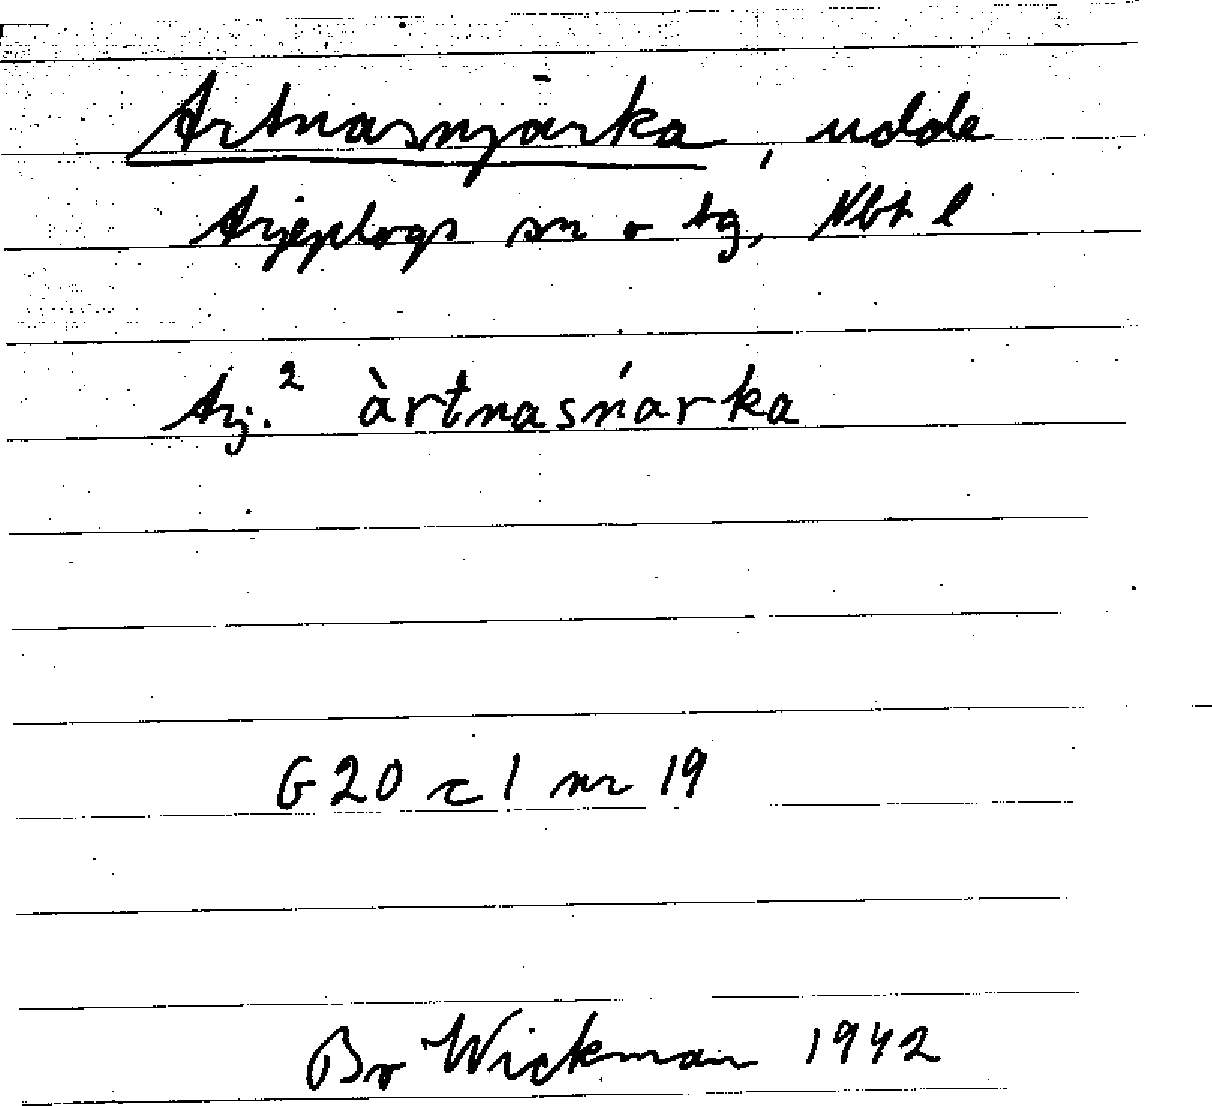 Artnasnjārka, udde
Arjeplogs sn o tg, Nbt l
Arj.² àrtnasńarka
G 20 c 1 nr 19
Bo Wickman 1942